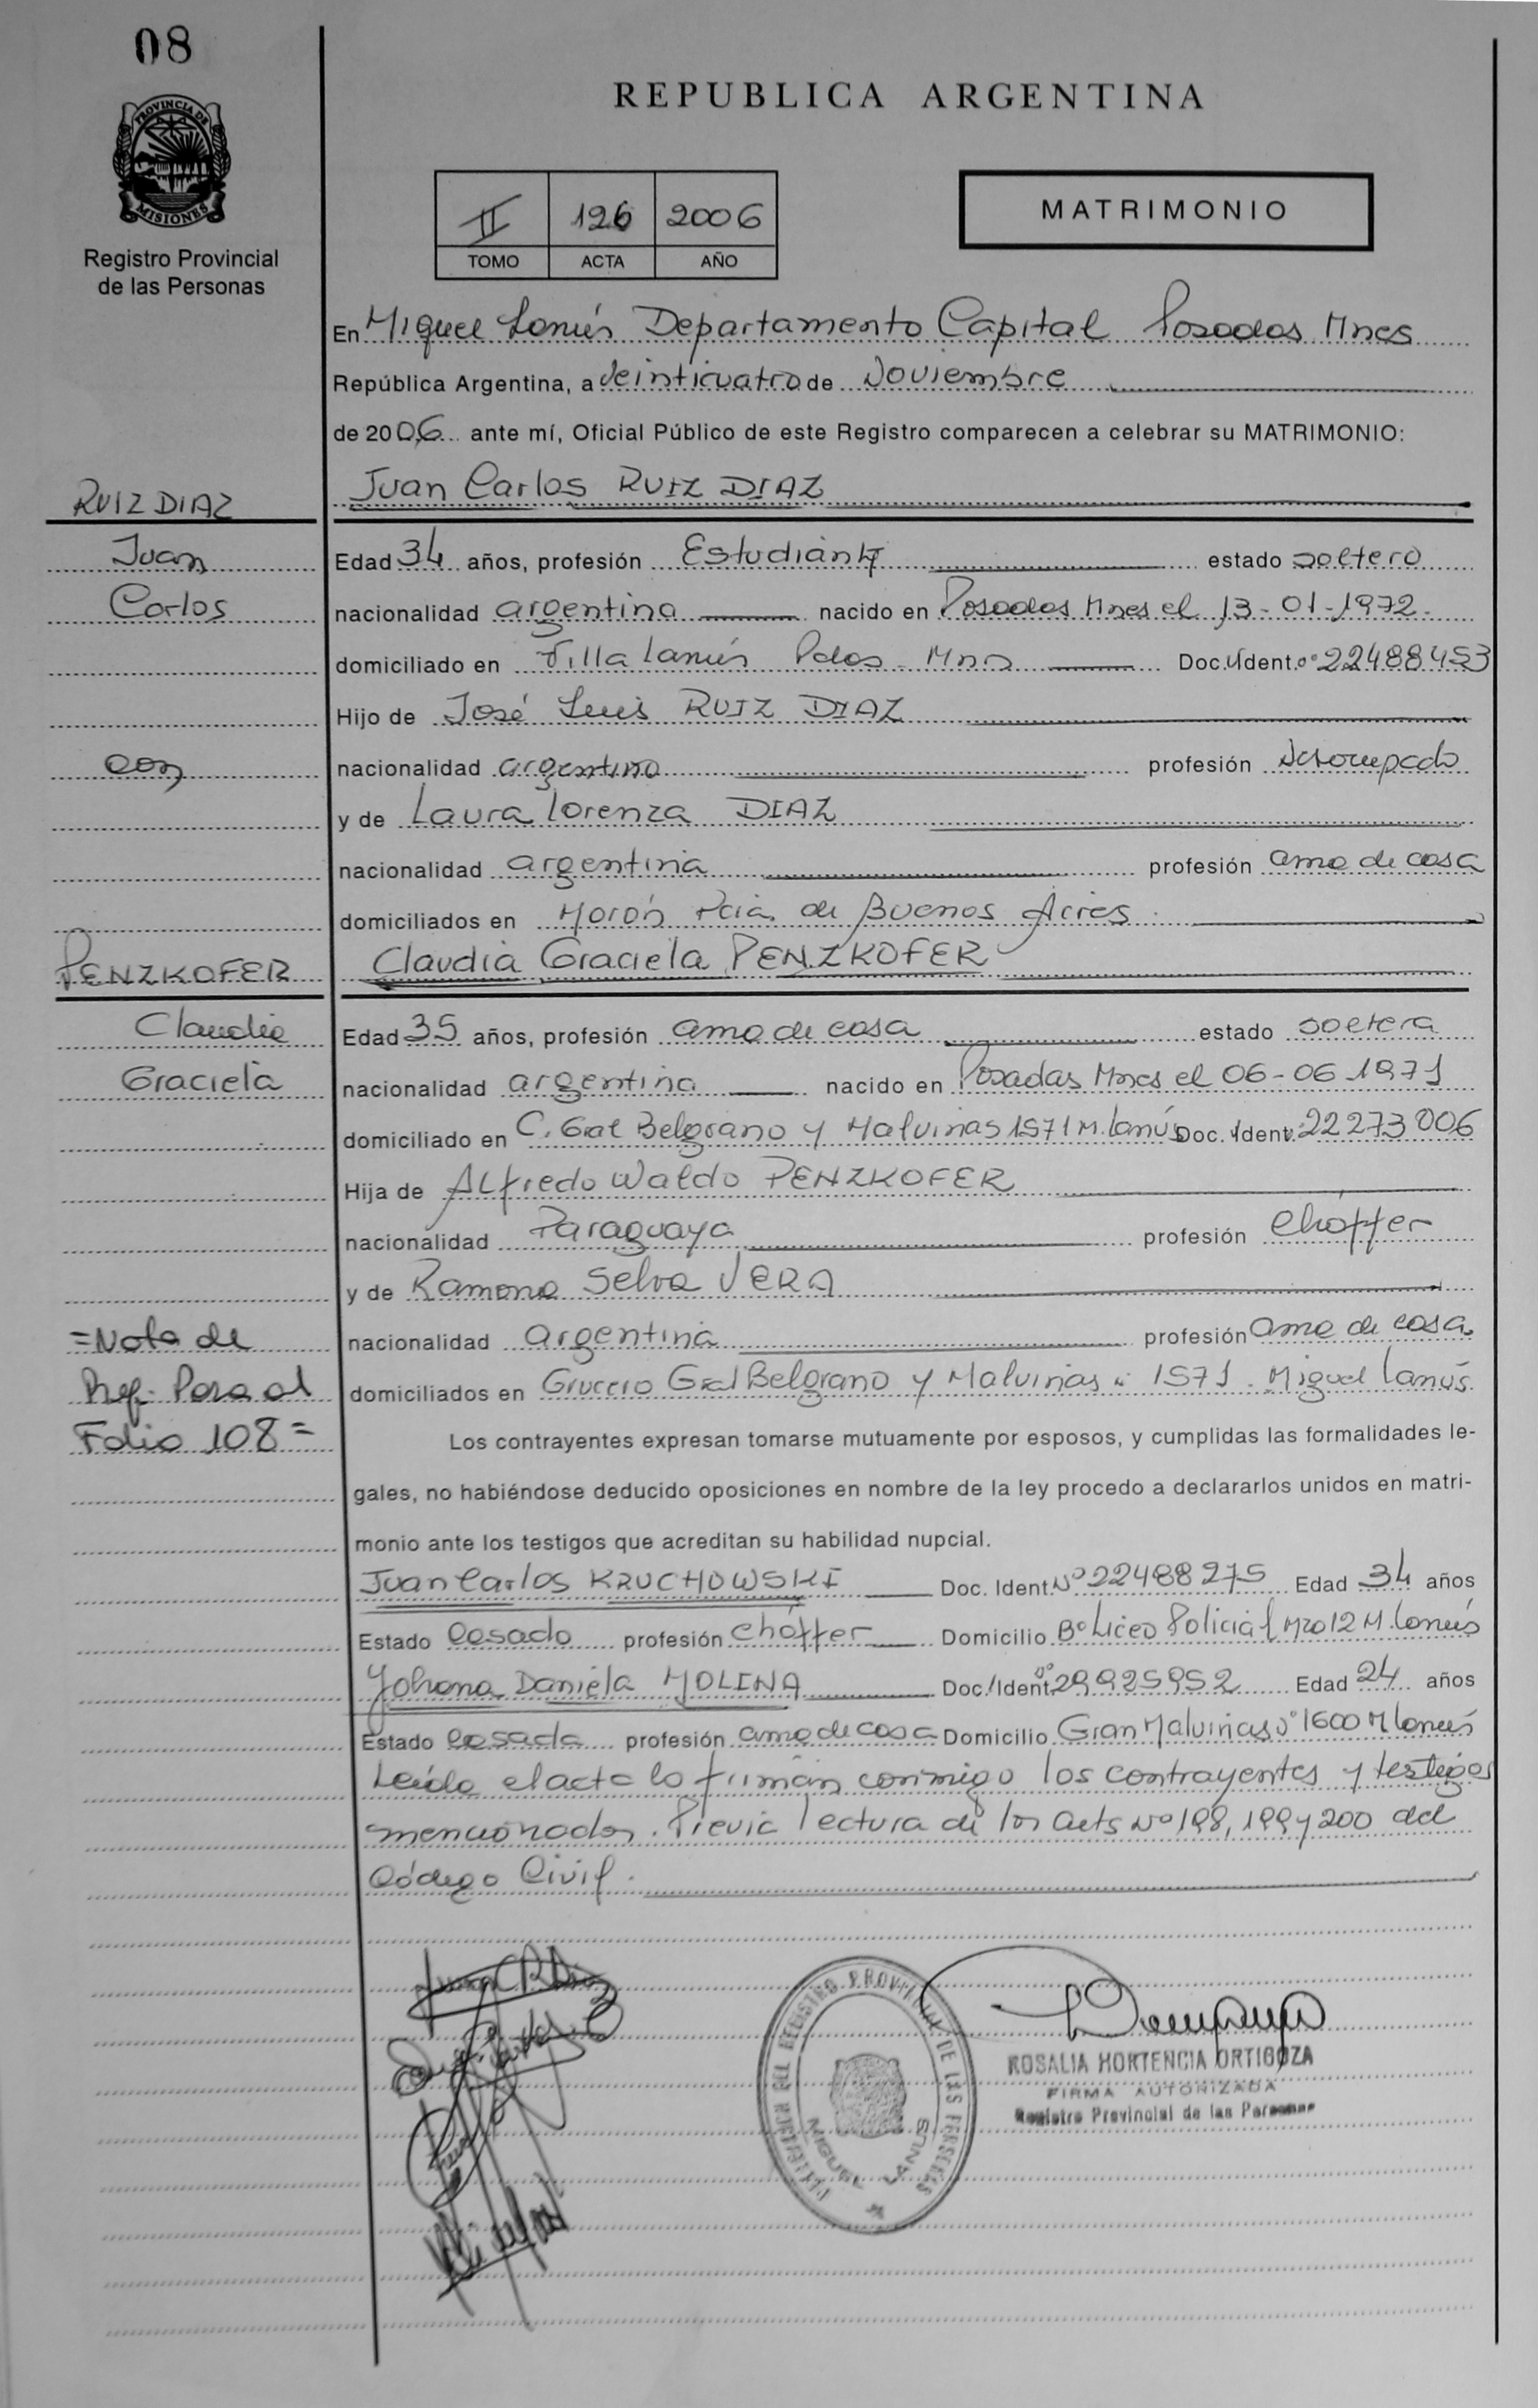 08
PROVINCIA DE
MISIONES
Registro Provincial
de las Personas
REPUBLICA ARGENTINA
II 126 2006
TOMO ACTA AÑO
MATRIMONIO
En Miguel Lanús Departamento Capital Posadas Mnes
República Argentina, a veinticuatro de Noviembre
de 2006 ante mí, Oficial Público de este Registro comparecen a celebrar su MATRIMONIO:
RUIZ DIAZ
Juan
Carlos
con
PENZKOFER
Claudia
Graciela
=Nota de
Ref. Pasa al
Folio 108=
Juan Carlos RUIZ DIAZ
Edad 34 años, profesión Estudiante estado soltero
nacionalidad argentina nacido en Posadas Mnes el 13-01-1972.
domiciliado en Villa Lanús Pdas - Mnes Doc. Ident. Nº 22488453
Hijo de José Luis RUIZ DIAZ
nacionalidad argentina profesión desocupado
y de Laura Lorenza DIAZ
nacionalidad argentina profesión ama de casa
domiciliados en Morón Pcia. de Buenos Aires.
Claudia Graciela PENZKOFER
Edad 35 años, profesión ama de casa estado soltera
nacionalidad argentina nacido en Posadas Mnes el 06-06-1971
domiciliado en C. Gral Belgrano y Malvinas 1571 M. Lanús Doc. Ident. 22273006
Hija de Alfredo Waldo PENZKOFER
nacionalidad Paraguaya profesión chóffer
y de Ramona Selva VERA
nacionalidad argentina profesión ama de casa
domiciliados en Crucero Gral Belgrano y Malvinas 1571. Miguel Lanús
Los contrayentes expresan tomarse mutuamente por esposos, y cumplidas las formalidades le-
gales, no habiéndose deducido oposiciones en nombre de la ley procedo a declararlos unidos en matri-
monio ante los testigos que acreditan su habilidad nupcial.
Juan Carlos KRUCHOWSKI Doc. Ident. Nº 22488275 Edad 34 años
Estado casado profesión chóffer Domicilio Bº Liceo Policial Mzo 12 M. Lanús
Yohana Daniela MOLINA Doc. Ident. Nº 29925952 Edad 24 años
Estado casada profesión ama de casa Domicilio Gran Malvinas Nº 1600 M Lanús
Leída el acta la firman conmigo los contrayentes y testigos
mencionados. Previa lectura de los arts Nº 198, 199 y 200 del
Código Civil.
REGISTRO PROVINCIAL DE LAS PERSONAS
MIGUEL LANUS
ROSALIA HORTENCIA ORTIGOZA
FIRMA AUTORIZADA
Registro Provincial de las Personas